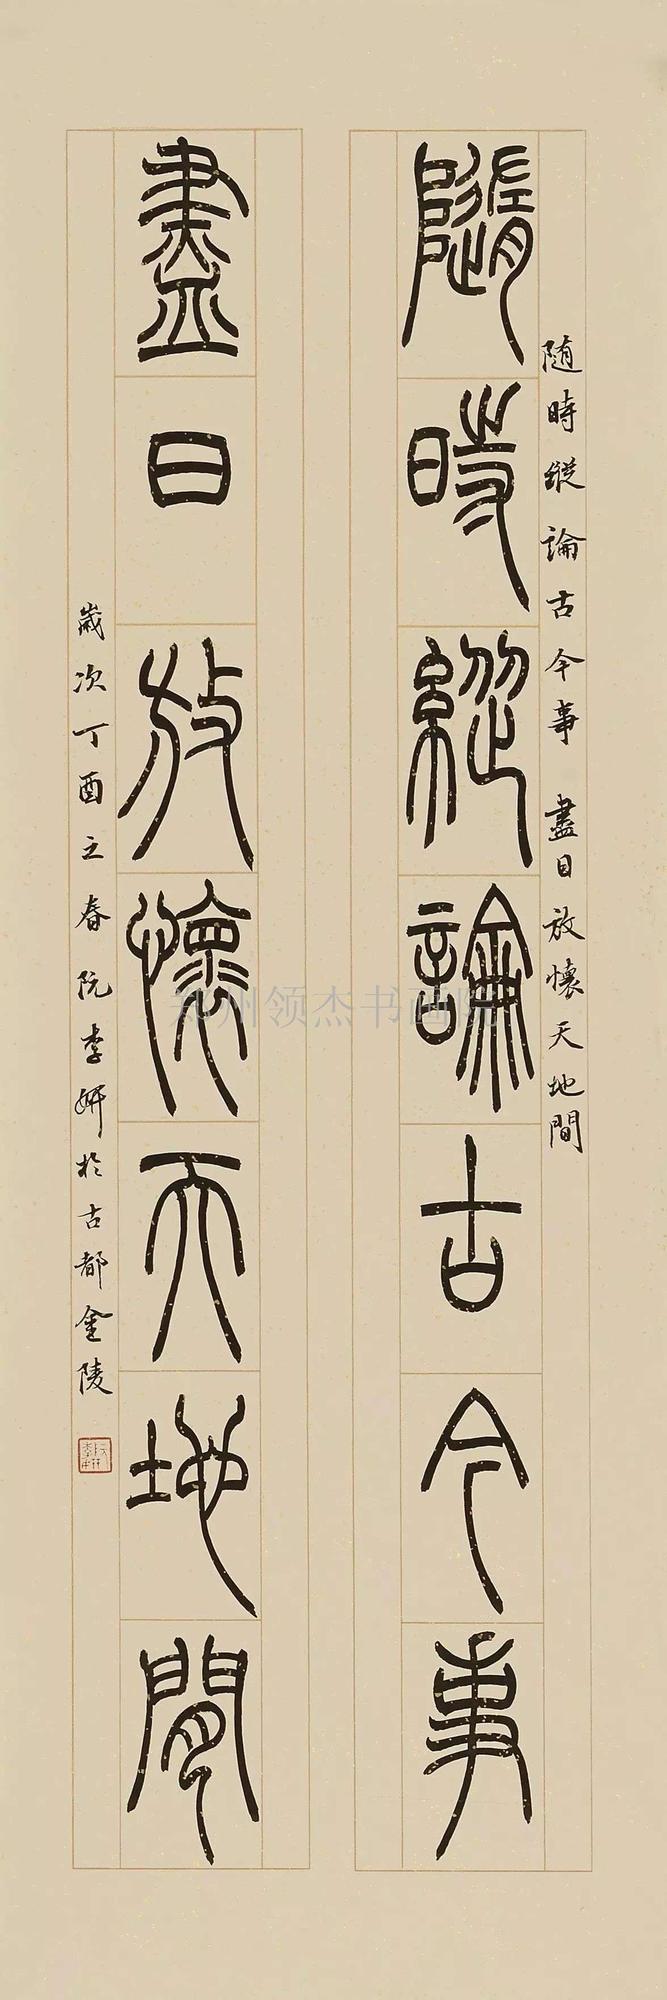 隨時縱論古今事
随時縱論古今事 盡目放懷天地間
盡日放懷天地間
歲次丁酉之春阮李妍於古都金陵
郑州领杰书画院